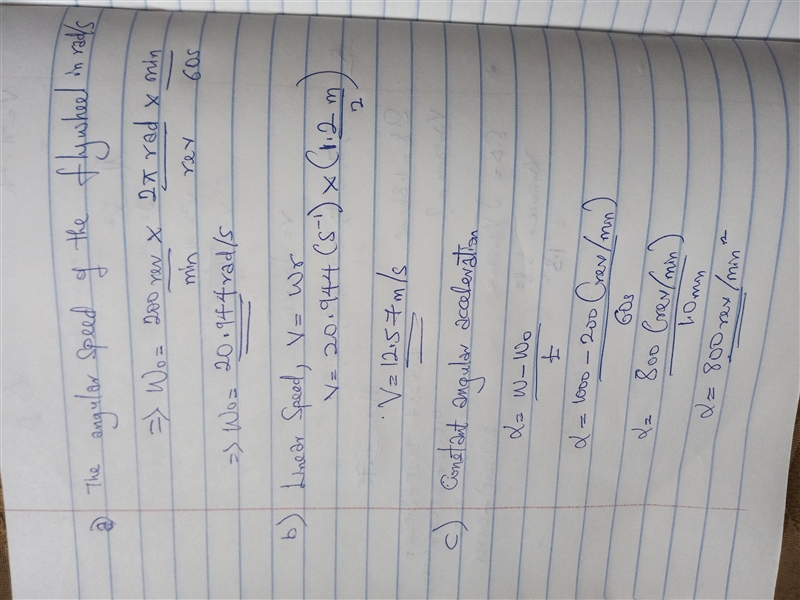 a) The angular speed of the flywheel in rad/s
=> W₀ = 200 rev/min × 2π rad/rev × min/60s
=> W₀ = 20.944 rad/s
b) Linear Speed, V = Wr
V = 20.944 (s⁻¹) × (1.2 m/2)
V = 12.57 m/s
c) Constant angular acceleration
α = W - W₀/t
α = 1000 - 200 (rev/min)/60s
α = 800 (rev/min)/1.0 min
α = 800 rev/min²